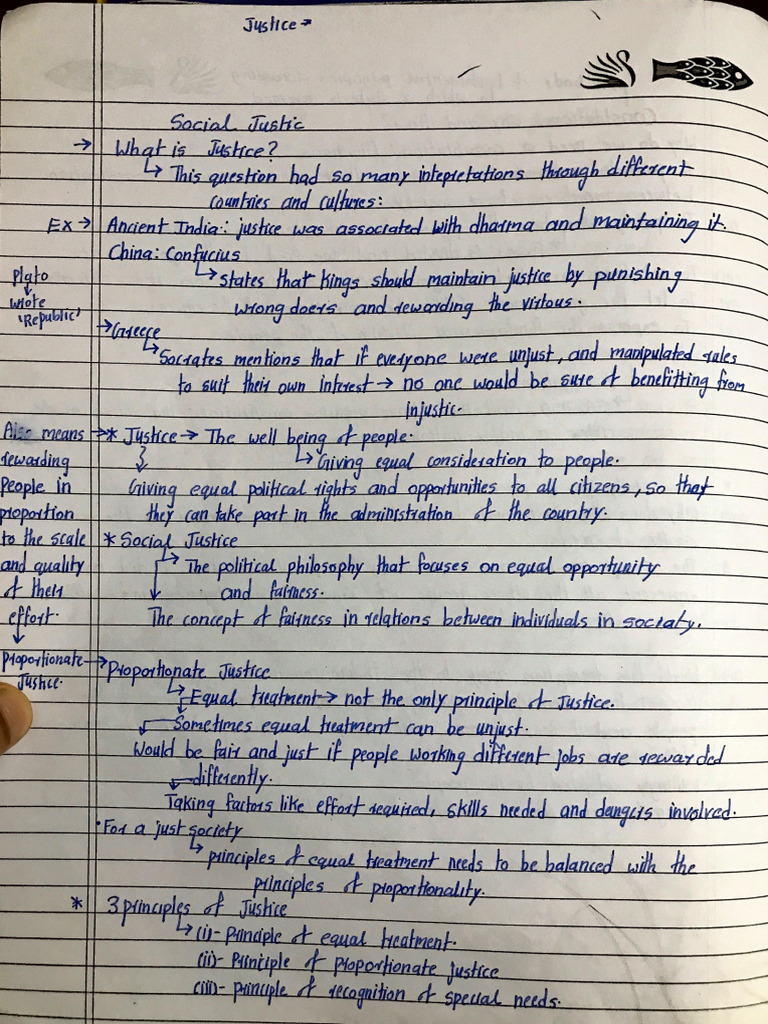 Justice →
Social Justic
→ What is Justice?
↳ This question had so many intepretations through different
countries and cultures:
Ex → Ancient India: justice was associated with dharma and maintaining it.
China: Confucius
↳ states that Kings should maintain justice by punishing
wrong doers and rewarding the virtous.
Plato
↓
wrote
'Republic'
→ Greece
↳ Socrates mentions that if everyone were unjust, and manipulated rules
to suit their own interest → no one would be sure of benefitting from
injustic.
Also means →
rewarding
people in
proportion
to the scale
and quality
of their
effort.
↓
proportionate →
Justice.
* Justice → The well being of people.
↳ Giving equal consideration to people.
Giving equal political rights and opportunities to all citizens, so that
they can take part in the administration of the country.
* Social Justice
↳ The political philosophy that focuses on equal opportunity
and fairness.
The concept of fairness in relations between individuals in society.
Proportionate Justice
↳ Equal treatment → not the only principle of Justice.
Sometimes equal treatment can be unjust.
Would be fair and just if people working different jobs are rewarded
differently.
Taking factors like effort required, skills needed and dangers involved.
• For a just society
↳ principles of equal treatment needs to be balanced with the
principles of proportionality.
* 3 principles of Justice
↳ (i)- Principle of equal treatment.
(ii)- Principle of proportionate justice
(iii)- principle of recognition of special needs.